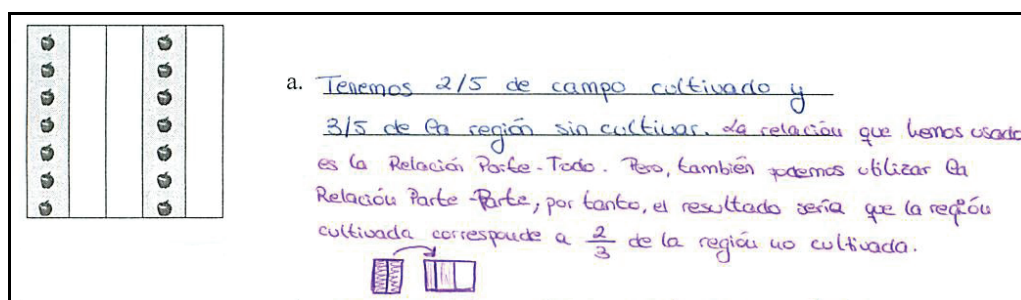 a. Tenemos 2/5 de campo cultivado y
3/5 de la región sin cultivar. La relación que hemos usado
es la Relación Parte-Todo. Pero, también podemos utilizar la
Relación Parte-Parte, por tanto, el resultado sería que la región
cultivada corresponde a 2/3 de la región no cultivada.